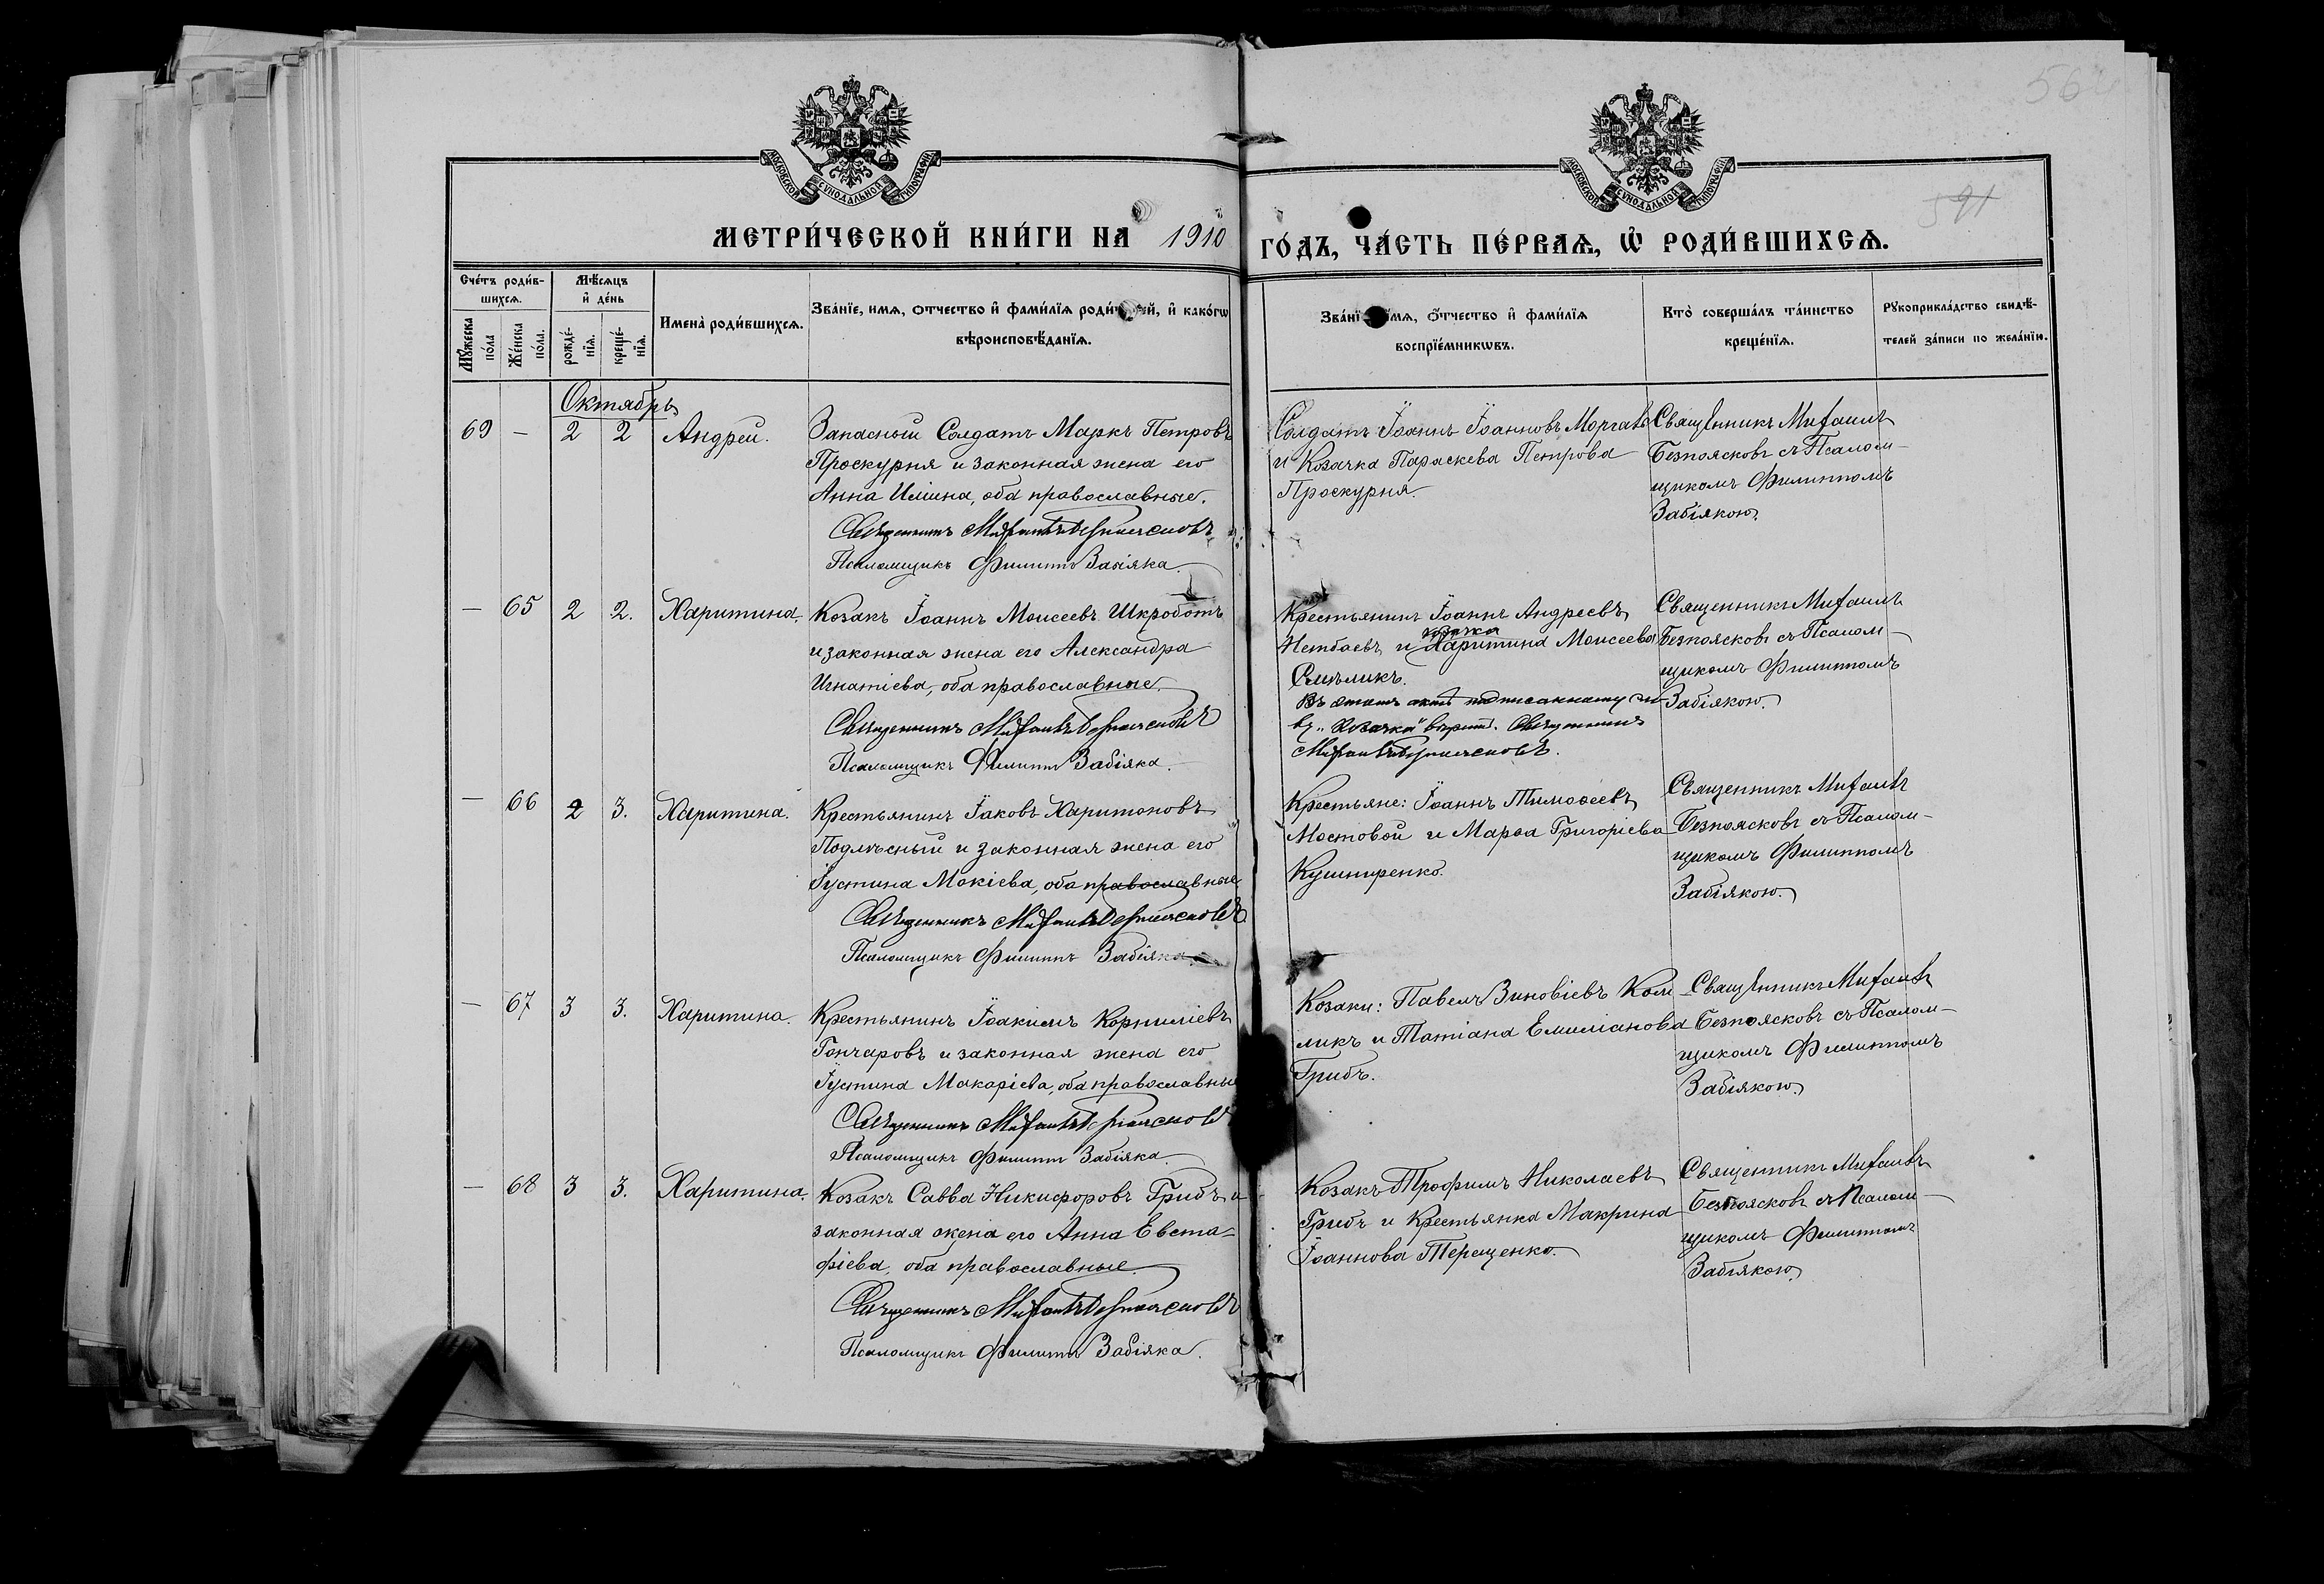 56
591
МОСКОВСКОЙ СУНОДАЛЬНОЙ ТИПОГРАФІИ
МОСКОВСКОЙ СУНОДАЛЬНОЙ ТИПОГРАФІИ
МЕТРИ́ЧЕСКОЙ КНИ́ГИ НА 1910
ГО́ДЪ, ЧА́СТЬ ПЕ́РВАѦ, Ѿ РОДИ́ВШИХСѦ.
Сче́тъ роди́в-
шихсѧ.
Мѣ́сѧцъ
и҆ де́нь
Мꙋ́жеска
по́ла
Же́нска
по́ла.
рожде́-
нїѧ.
креще́-
нїѧ.
Имена̀ роди́вшихсѧ.
Зва́нїе, имѧ, отчество и҆ фами́лїѧ роди́т ей, и҆ како́гѡ
вѣроисповѣ́данїѧ.
Зва́нї и́мѧ, о́тчество и҆ фами́лїѧ
воспрїе́мникѡвъ.
Кто̀ соверша́лъ та́инство
креще́нїѧ.
Рꙋкоприкла́дство свидѣ́-
телей за́писи по жела́нїю.
Октябрь
69 — 2 2 Андрей.
Запасный Солдатъ Маркъ Петровъ
Проскурня и законная жена его
Анна Иліина, оба православные.
Священникъ Михаилъ Безпоясковъ
Псаломщикъ Филиппъ Забіяка.
Солдатъ Іоаннъ Іоанновъ
и Козачка Параскева Петрова
Проскурня.
Священникъ Михаилъ
Безпоясковъ съ Псалом-
щикомъ Филиппомъ
Забіякою.
— 65 2 2. Харитина.
Козакъ Іоаннъ Моисеевъ Шкроботъ
и законная жена его Александра
Игнатіева, оба православные.
Священникъ Михаилъ Безпоясковъ
Псаломщикъ Филиппъ Забіяка.
Крестьянинъ Іоаннъ Андреевъ
козачка
и Харитина Моисеева
Въ этомъ актѣ надписанному
„Козачка" вѣрить. Священникъ
Михаилъ Безпоясковъ.
Священникъ Михаилъ
Безпоясковъ съ Псалом-
щикомъ Филиппомъ
Забіякою.
— 66 2 3. Харитина.
Крестьянинъ Іаковъ Харитоновъ
Подлѣсный и законная жена его
Іустина Мокіева, оба православные
Священникъ Михаилъ Безпоясковъ
Псаломщикъ Филиппъ Забіяка.
Крестьяне: Іоаннъ Тимоѳеевъ
Мостовой и Марѳа Григоріева
Кушниренко.
Священникъ Михаилъ
Безпоясковъ съ Псалом-
щикомъ Филиппомъ
Забіякою.
— 67 3 3. Харитина.
Крестьянинъ Іоакимъ Корниліевъ
Гончаровъ и законная жена его
Іустина Макаріева, оба православные
Священникъ Михаилъ Безпоясковъ
Псаломщикъ Филиппъ Забіяка.
Козаки: Павелъ Зиновіевъ Ком
ликъ и Татіана Емиліанова
Грибъ.
Священникъ Михаилъ
Безпоясковъ съ Псалом-
щикомъ Филиппомъ
Забіякою.
— 68 3 3. Харитина.
Козакъ Савва Никифоровъ Грибъ и
законная жена его Анна Евста-
фіева, оба православные.
Священникъ Михаилъ Безпоясковъ
Псаломщикъ Филиппъ Забіяка.
Козакъ Трофимъ Николаевъ
Грибъ и Крестьянка Макрина
Іоаннова Терещенко.
Священникъ Михаилъ
Безпоясковъ съ Псалом-
щикомъ Филиппомъ
Забіякою.